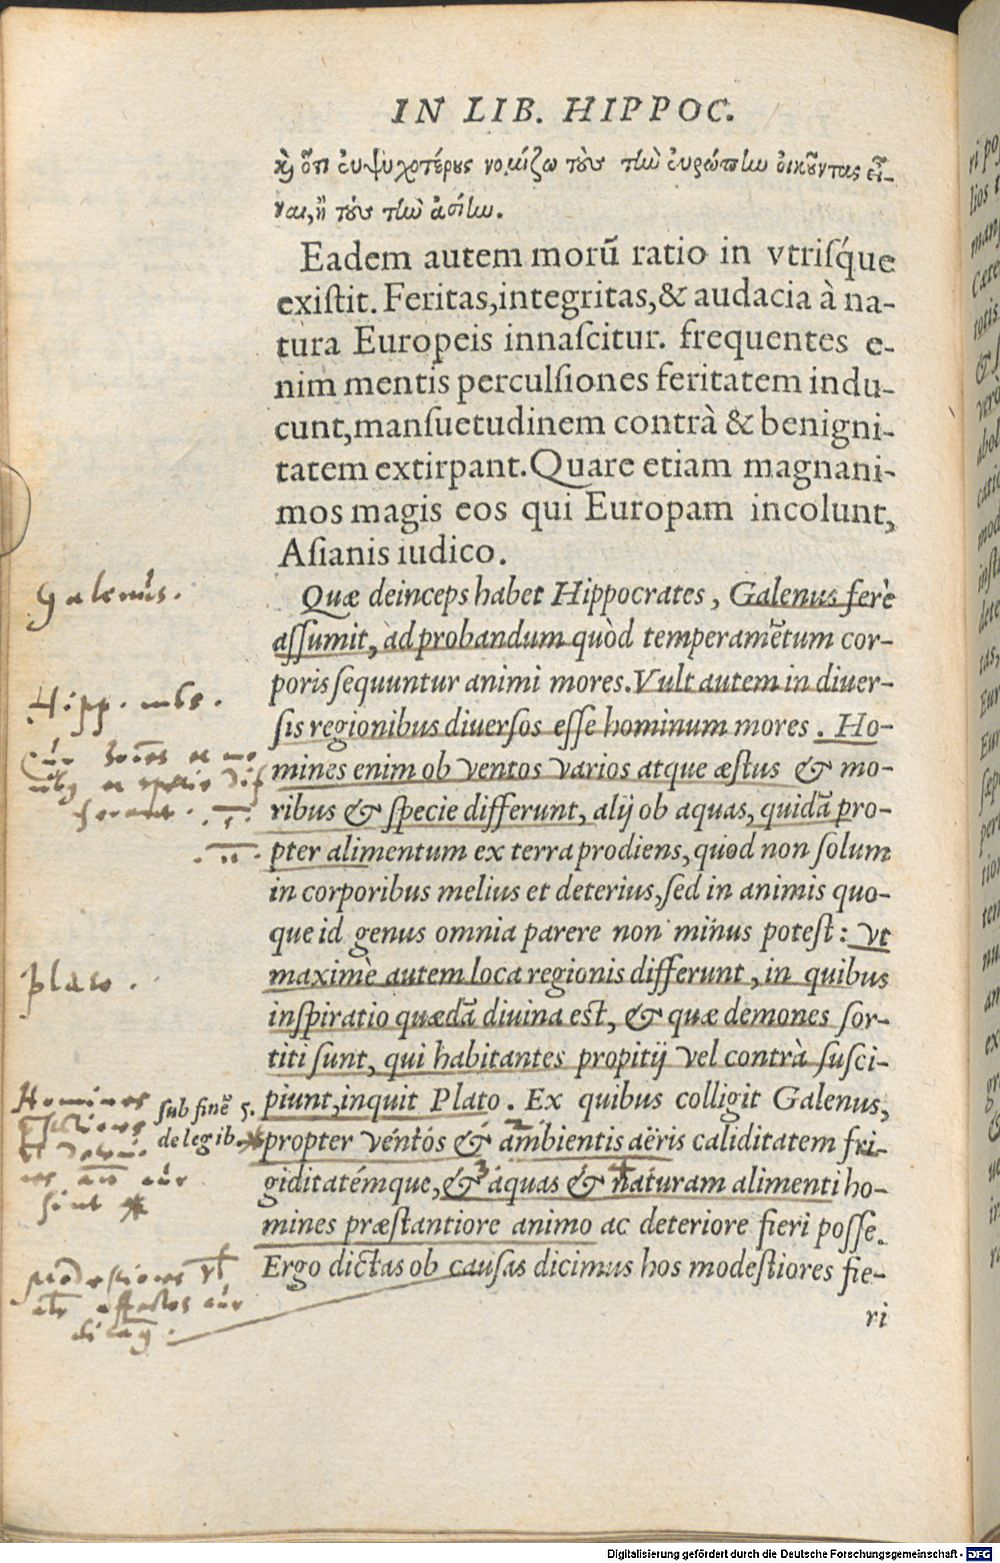 IN LIB. HIPPOC.
ϗ ὅτι εὐψυχοτέρους νομίζω τοὺς τὴν εὐρώπην οἰκοῦντας εἶ-
ναι, ἢ τοὺς τὴν ἀσίην.
Eadem autem morū ratio in vtriſq́ue
exiſtit. Feritas, integritas, & audacia à na-
tura Europeis innaſcitur. frequentes e-
nim mentis perculſiones feritatem indu-
cunt, manſuetudinem contrà & benigni-
tatem extirpant. Quare etiam magnani-
mos magis eos qui Europam incolunt,
Aſianis iudico.
Galenus.
Quæ deinceps habet Hippocrates, Galenus ferè
aſſumit, ad probandum quòd temperamētum cor-
poris ſequuntur animi mores. Vult autem in diuer-
Hipp.
ſis regionibus diuerſos eſſe hominum mores. Ho-
mines enim ob ventos varios atque æſtus & mo-
ribus & ſpecie differunt, alij ob aquas, quidā pro-
pter alimentum ex terra prodiens, quod non ſolum
in corporibus melius et deterius, ſed in animis quo-
que id genus omnia parere non minus poteſt: vt
Plato.
maximè autem loca regionis differunt, in quibus
inſpiratio quædā diuina eſt, & quæ demones ſor-
titi ſunt, qui habitantes propitij vel contrà ſuſci-
Homines
ſub finē 5.
piunt, inquit Plato. Ex quibus colligit Galenus,
de legib.
propter ventos & ambientis aëris caliditatem fri-
giditatémque, & aquas & naturam alimenti ho-
sint *
mines præſtantiore animo ac deteriore fieri poſſe.
Ergo dictas ob cauſas dicimus hos modeſtiores fie-
ri
Digitalisierung gefördert durch die Deutsche Forschungsgemeinschaft - DFG